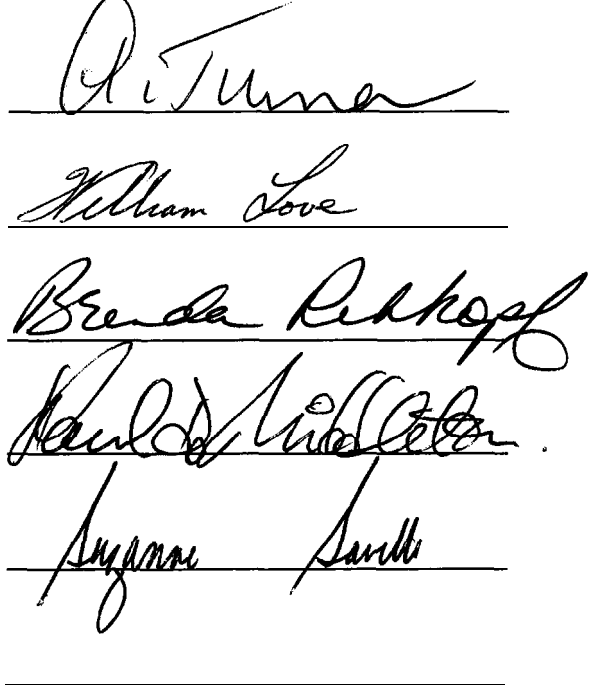 Turner
William Love
Brenda Rehkopf
Paul D. Middleton
Suzanne Savelli